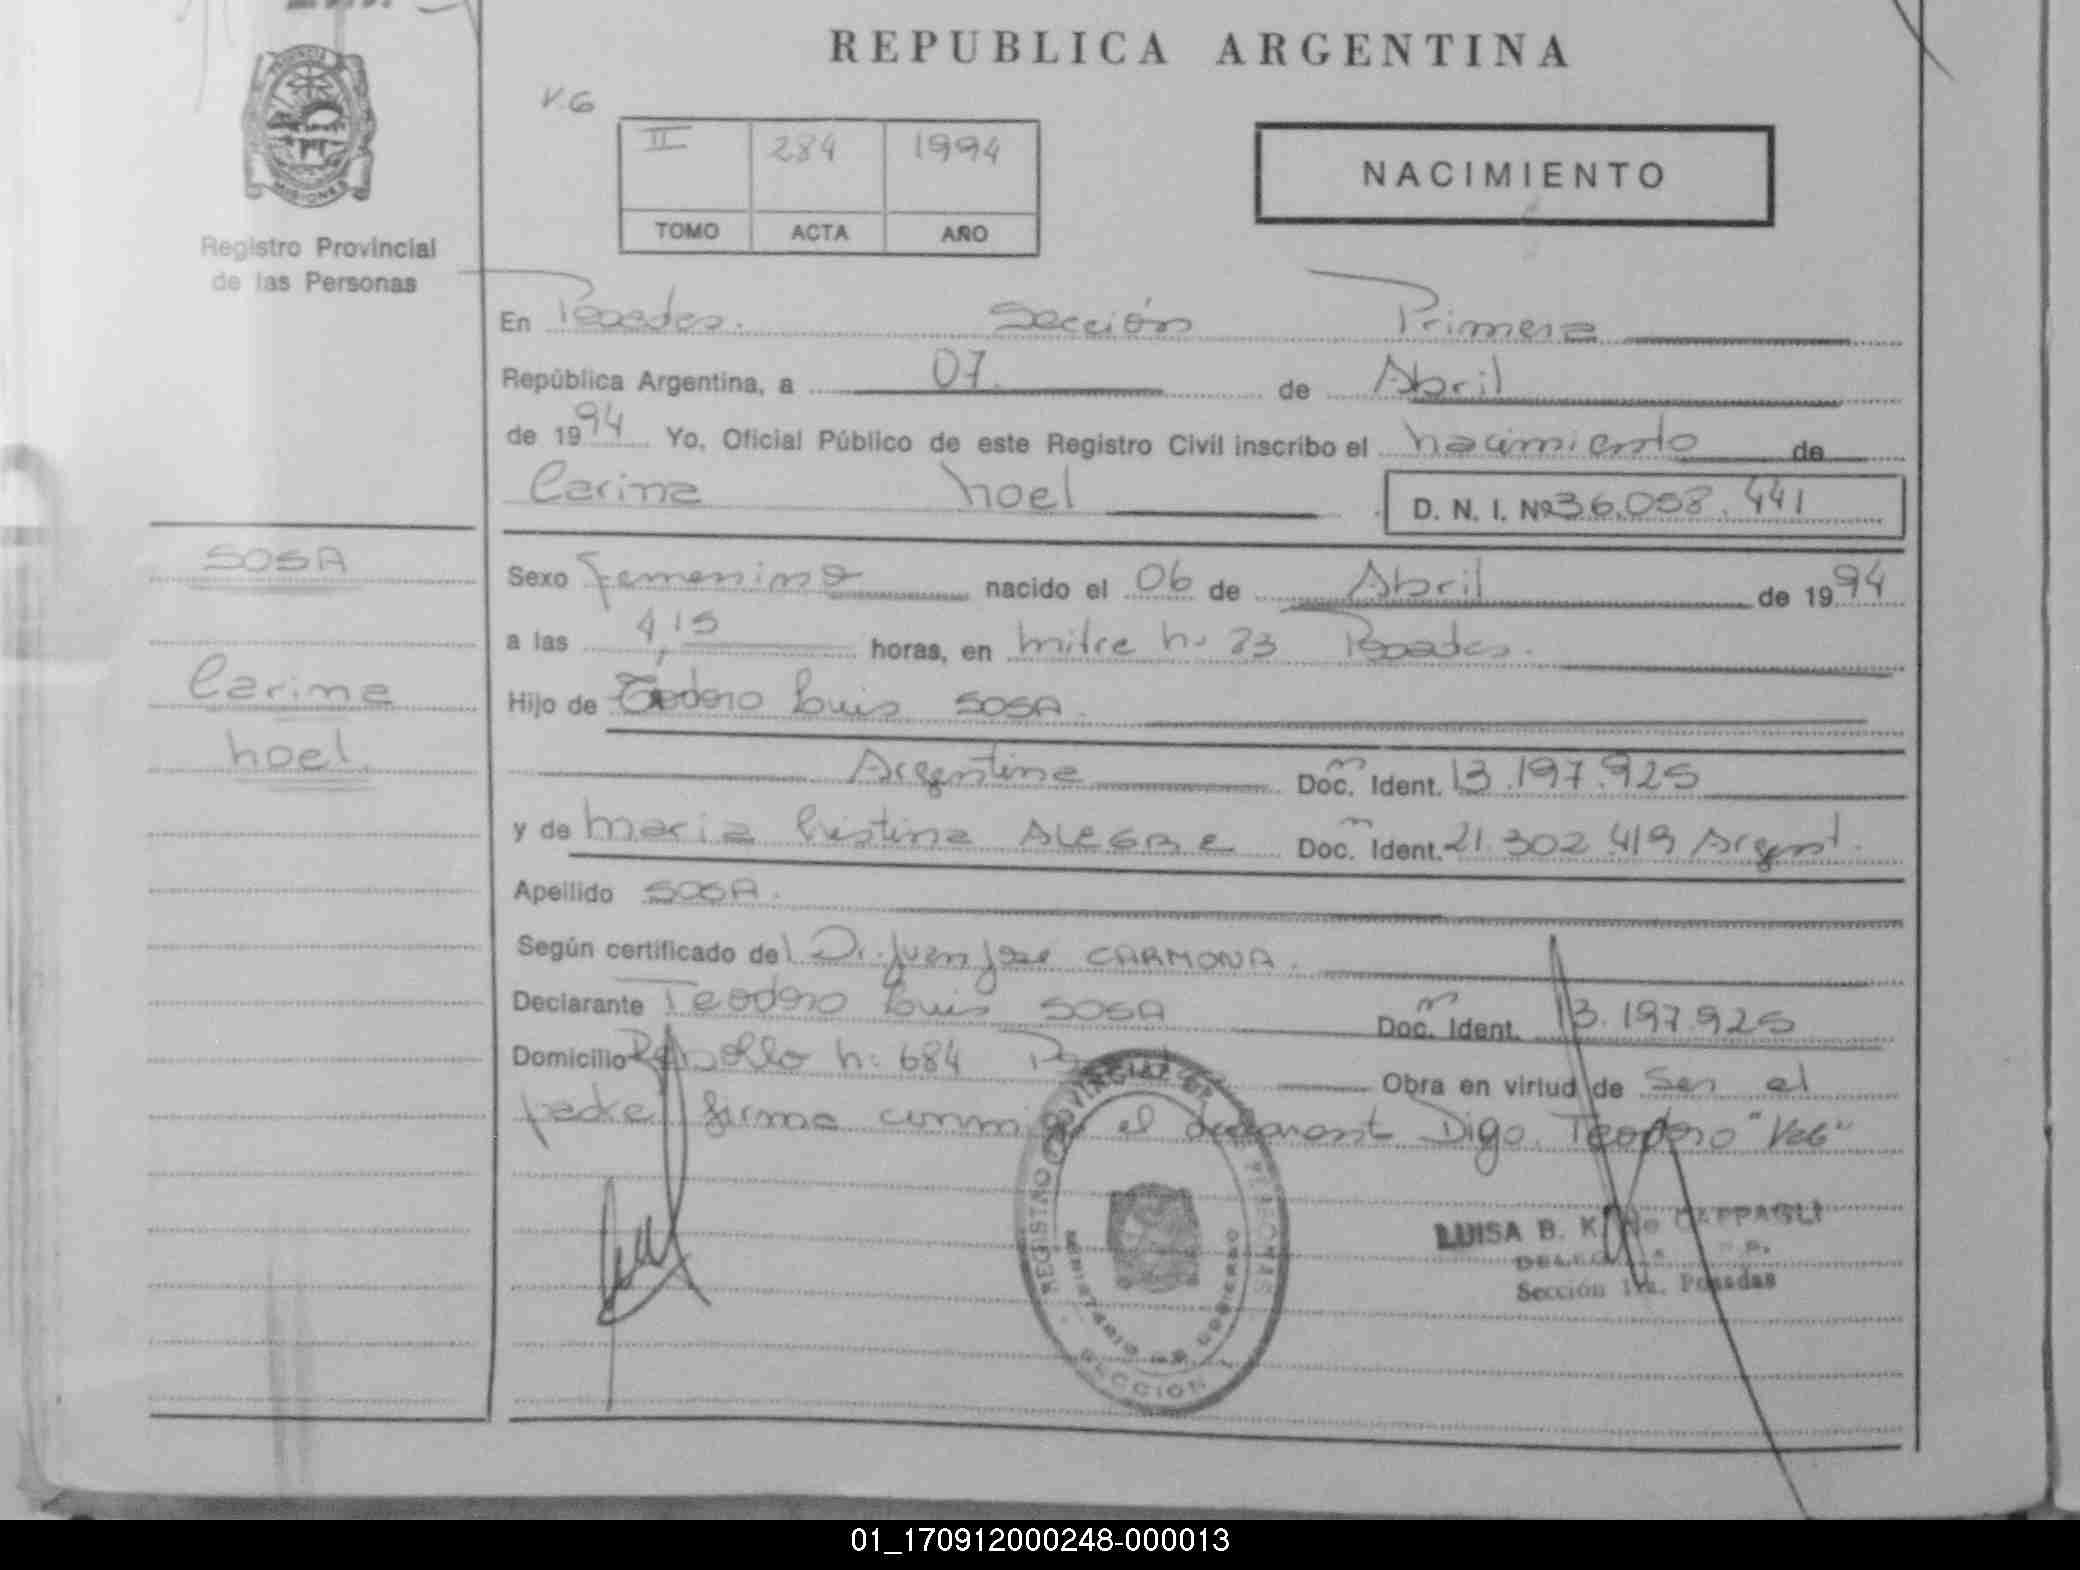 REPUBLICA ARGENTINA
V.G
II 284 1994
TOMO ACTA AÑO
NACIMIENTO
PROVINCIA
MISIONES
Registro Provincial
de las Personas
En Posadas. Sección Primera
República Argentina, a 07. de Abril
de 1994 Yo, Oficial Público de este Registro Civil inscribo el nacimiento de
Carina noel
D. N. I. Nº 36.058.441
SOSA
Carina
noel.
Sexo femenino nacido el 06 de Abril de 1994
a las 4,15 horas, en mitre n: 23 Posadas.
Hijo de Teodoro Luis SOSA.
Argentina Doc. Ident. 13.197.925
y de maria Cristina ALEGRE Doc. Ident. 21.302.419 Argent.
Apellido SOSA.
Según certificado del Dr. Juan Jose CARMONA.
Declarante Teodoro Luis SOSA Doc. Ident. 13.197.925
Domicilio n: 684 Obra en virtud de Ser el
padre firma conmigo el declarant Digo. Teodoro "Vale"
REGISTRO PROVINCIAL DE LAS PERSONAS
MINISTERIO DE GOBIERNO
SECCION 1
LUISA B. K. de CAPPAGLI
Sección 1ra. Posadas
01_170912000248-000013